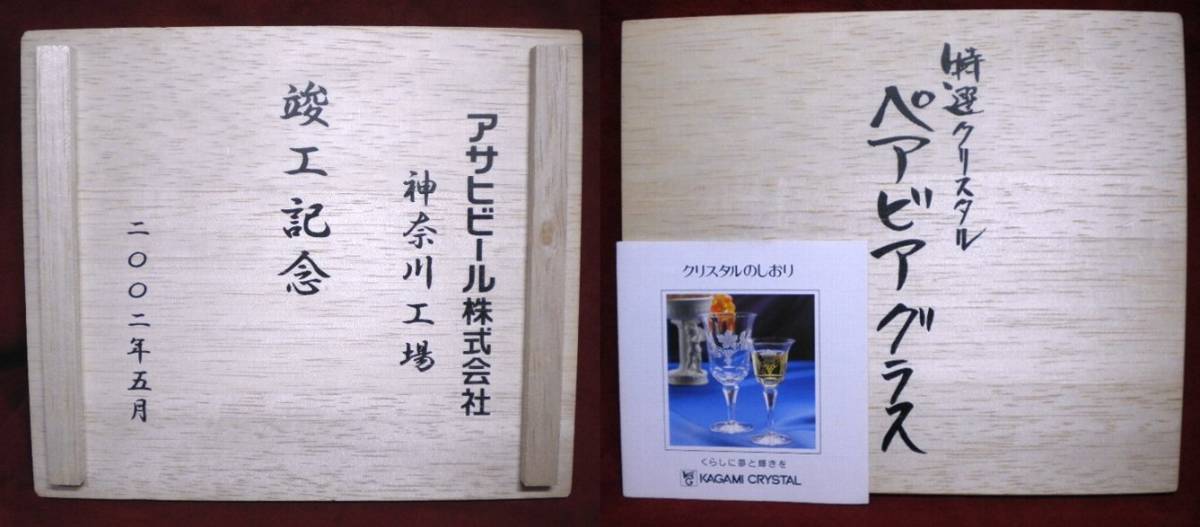 アサヒビール株式会社
神奈川工場
竣工記念
二〇〇二年五月
特選クリスタル
ペアビアグラス
クリスタルのしおり
くらしに夢と輝きを
KAGAMI CRYSTAL